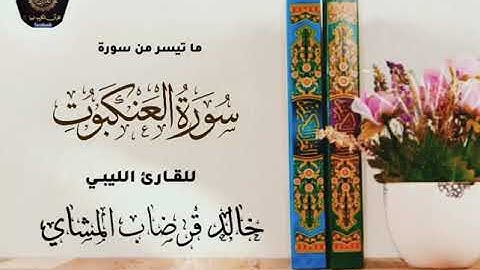 ما تيسر من سورة
سُورَةُ العَنْكَبُوتِ
للقارئ الليبي
خالد قرضاب المشاي